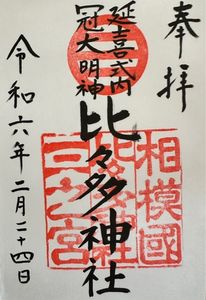 奉拝
延喜式内
冠大明神
比々多神社
相模國
三之宮
令和六年二月二十四日